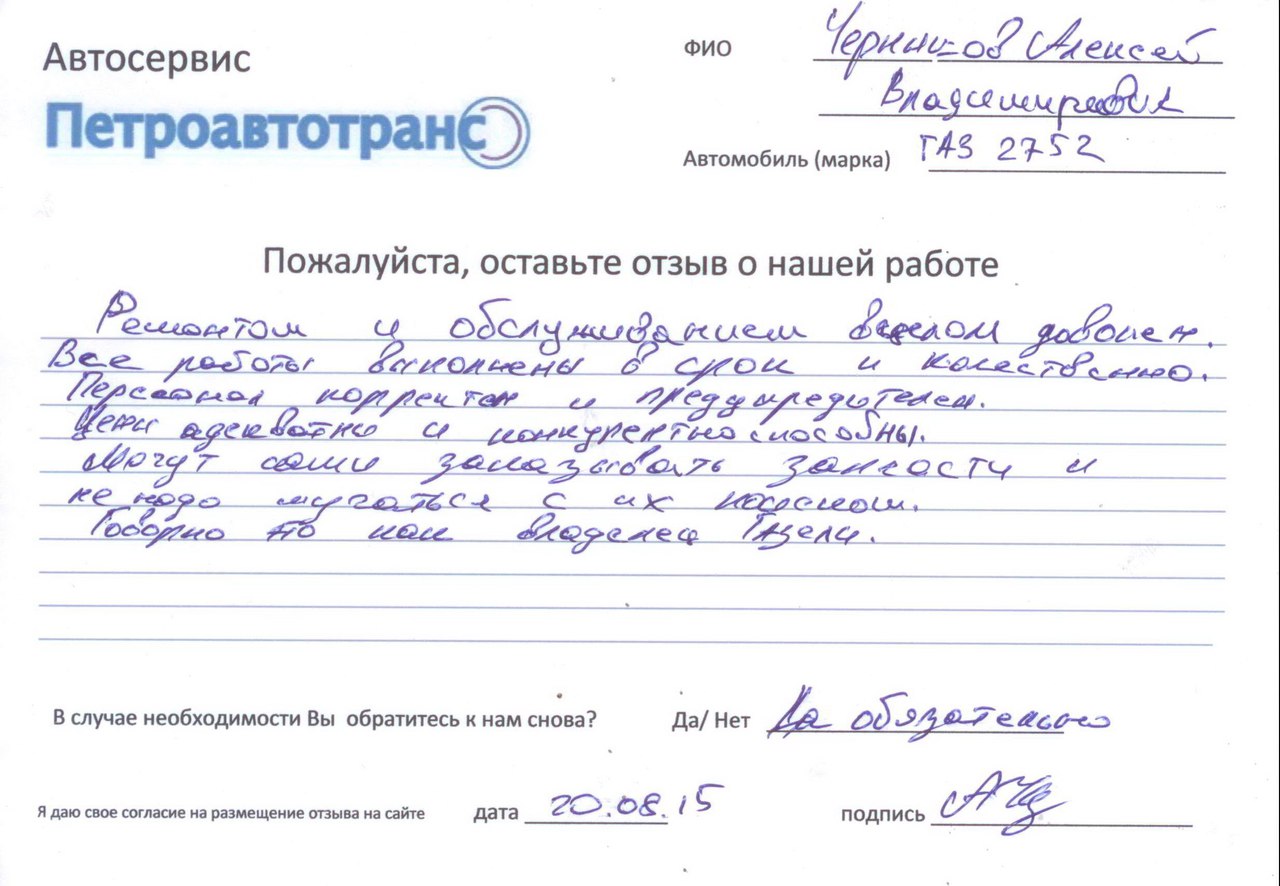 Автосервис
Петроавтотранс
ФИО Черников Алексей
Владимирович
Автомобиль (марка) ГАЗ 2752
Пожалуйста, оставьте отзыв о нашей работе
Ремонтом и обслуживанием вцелом доволен.
Все работы выполнены в срок и качественно.
Персонал корректен и предупредителен.
Цены адекватны и конкурентноспособны.
Могут сами заказывать запчасти и
не надо мучаться с их поиском.
Говорю то как владелец Газели.
В случае необходимости Вы обратитесь к нам снова? Да/ Нет Да обязательно
Я даю свое согласие на размещение отзыва на сайте дата 20.08.15 подпись